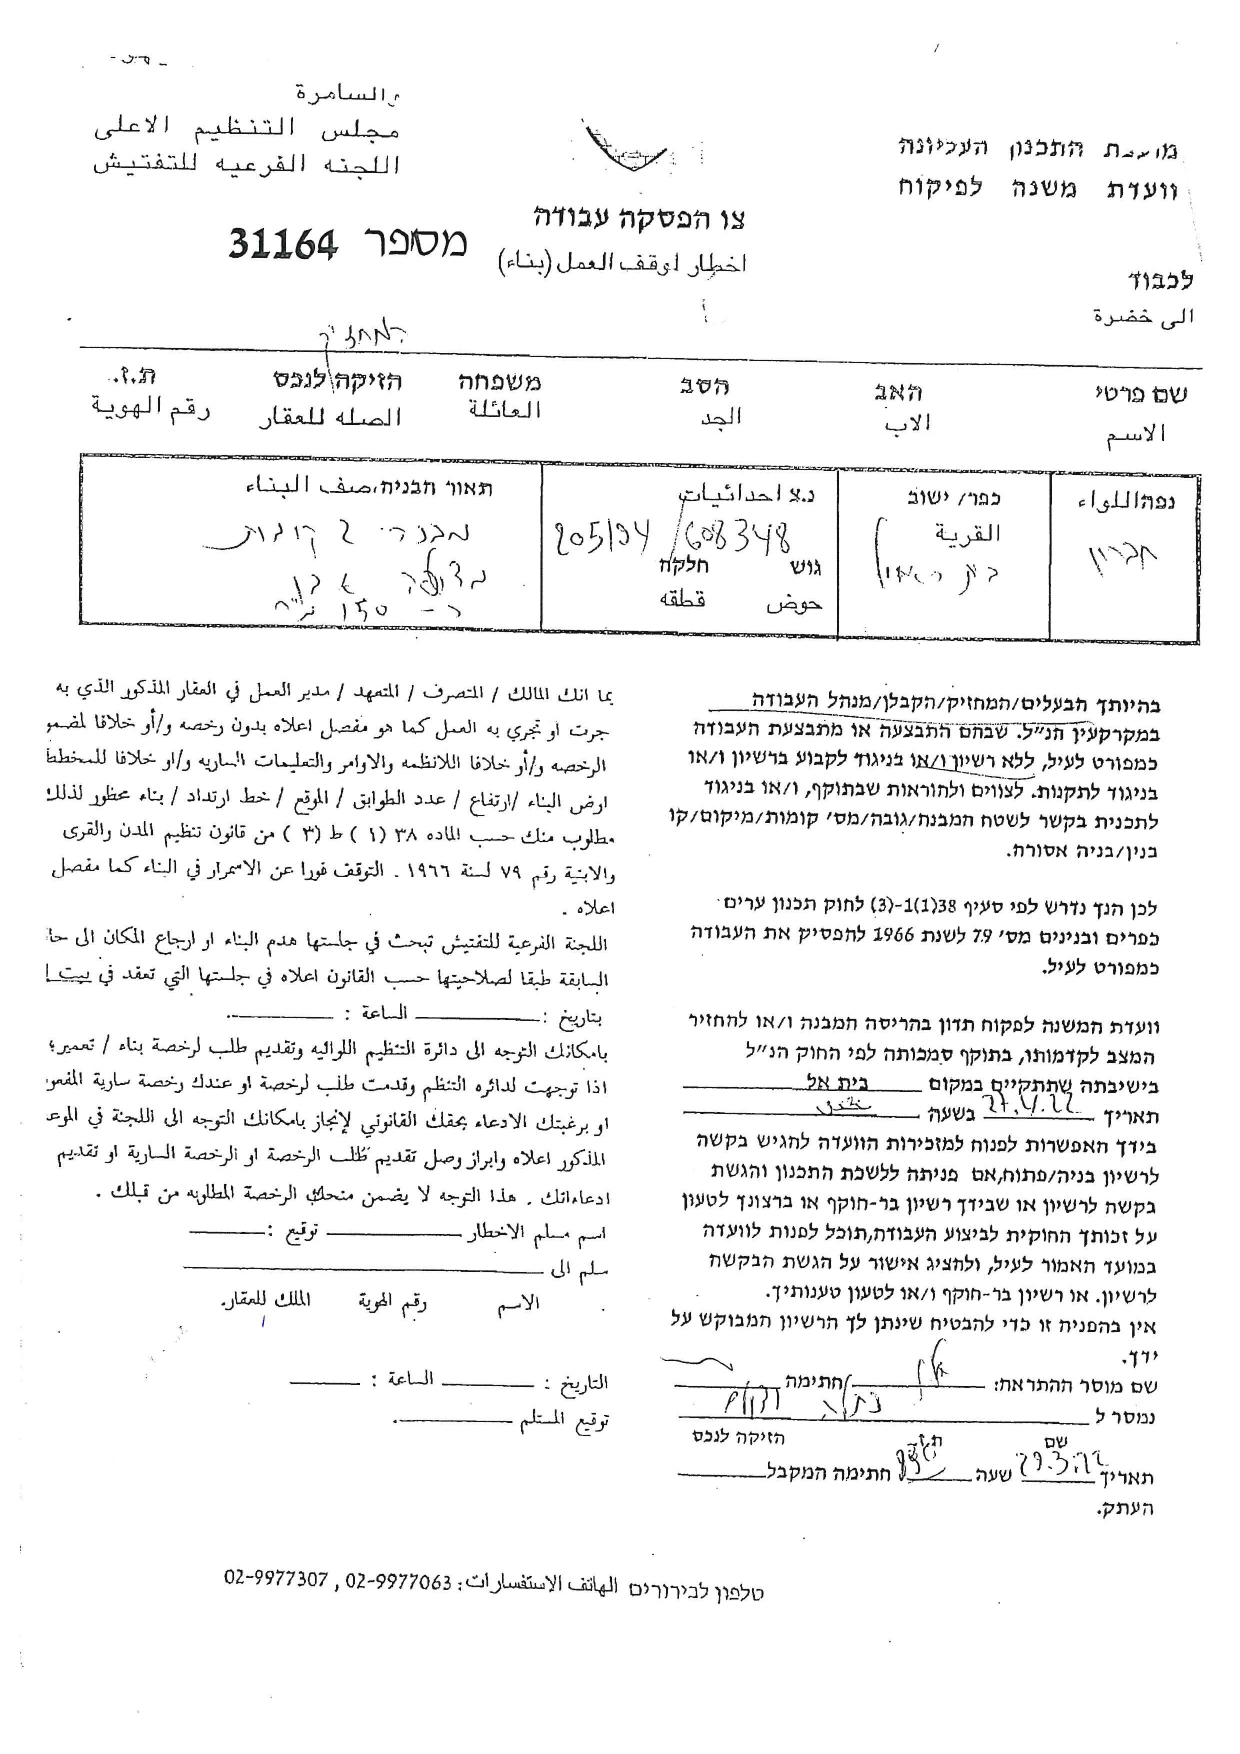 والسامرة
مجلس التنظيم الاعلى
اللجنه الفرعيه للتفتيش
התכנון העליונה
וועדת משנה לפיקוח
צו הפסקה עבודה
מספר 31164
اخطار لوقف العمل (بناء)
לכבוד
الى حضرة
המחזיק
שם פרטי האב הסב משפחה הזיקה לנכס ת.ז.
الاسم الاب الجد العائلة الصله للعقار رقم الهوية
נפה/اللواء כפר/ ישוב נ.צ احداثيات תאור הבניה،صف البناء
القرية
חברון
205194/608348
גוש חלקה
حوض قطقه
מבנה 2 קומות
אבן
כ- 150 מ"ר
בהיותך הבעלים/המחזיק/הקבלן/מנהל העבודה
במקרקעין הנ״ל. שבהם התבצעה או מתבצעת העבודה
כמפורט לעיל, ללא רשיון ו/או בניגוד לקבוע ברשיון ו/או
בניגוד לתקנות. לצווים ולהוראות שבתוקף, ו/או בניגוד
לתכנית בקשר לשטח המבנה/גובה/מס׳ קומות/מיקום/קו
בנין/בניה אסורה.
לכן הנך נדרש לפי סעיף 38(1)1-(3) לחוק תכנון ערים
כפרים ובנינים מס׳ 79 לשנת 1966 להפסיק את העבודה
כמפורט לעיל.
וועדת המשנה לפקוח תדון בהריסה המבנה ו/או להחזיר
המצב לקדמותו, בתוקף סמכותה לפי החוק הנ״ל
בישיבתה שתתקיים במקום בית אל
תאריך 27.4.22 בשעה
בידך האפשרות לפנוח למזכירות הוועדה להגיש בקשה
לרשיון בניה/פתוח,אם פניתה ללשכת התכנון והגשת
בקשה לרשיון או שבידך רשיון בר-חוקף או ברצונך לטעון
על זכותך החוקית לביצוע העבודה,תוכל לפנות לוועדה
במועד האמור לעיל, ולהציג אישור על הגשת הבקשה
לרשיון. או רשיון בר-חוקף ו/או לטעון טענותיך.
אין בהפניה זו כדי להבטיח שינתן לך הרשיון המבוקש על
ידך.
שם מוסר ההתראה: חתימה
נמסר ל
שם ת.ז. הזיקה לנכס
תאריך 29.3.22 שעה חתימה המקבל
העתק.
بما انك المالك / المتصرف / المتعهد / مدير العمل في العقار المذكور الذي به
جرت او تجري به العمل كما هو مفصل اعلاه بدون رخصه و/أو خلافا لمضمو
الرخصه و/أو خلافا اللانظمه والاوامر والتعليمات الساريه و/او خلافا للمخطط
اوض البناء /ارتفاع / عدد الطوابق / الموقع / خط ارتداد / بناء محظور لذلك
مطلوب منك حسب الماده ٣٨ (١) ط (٣) من قانون تنظيم المدن والقرى
والابنية رقم ٧٩ لسنة ١٩٦٦ . التوقف فورا عن الاسمرار في البناء كما مفصل
اعلاه .
اللجنة الفرعية للتفتيش تبحث في جلستها هدم البناء او ارجاع المكان الى حا
السابقة طبقا لصلاحيتها حسب القانون اعلاه في جلستها التي تعقد في بيت ا
بتاريخ : الساعة :
بامكانك التوجه الى دائرة التنظيم اللوائيه وتقديم طلب لرخصة بناء / تعمير؛
اذا توجهت لدائره التنظم وقدمت طلب لرخصة او عندك رخصة سارية المفعو
او برغبتك الادعاء بحقك القانوني لإنجاز بامكانك التوجه الى اللجنة في الموعد
المذكور اعلاه وابراز وصل تقديم طلب الرخصة او الرخصة السارية او تقديم
ادعاءاتك . هذا التوجه لا يضمن منحك الرخصة المطلوبه من قبلك .
اسم مسلم الاخطار توقيع :
سلم الى
الاسم رقم الهوية الملك للعقار.
التاريخ : الساعة :
توقيع المستلم
טלפון לבירורים الهاتف الاستفسارات: 02-9977063 , 02-9977307